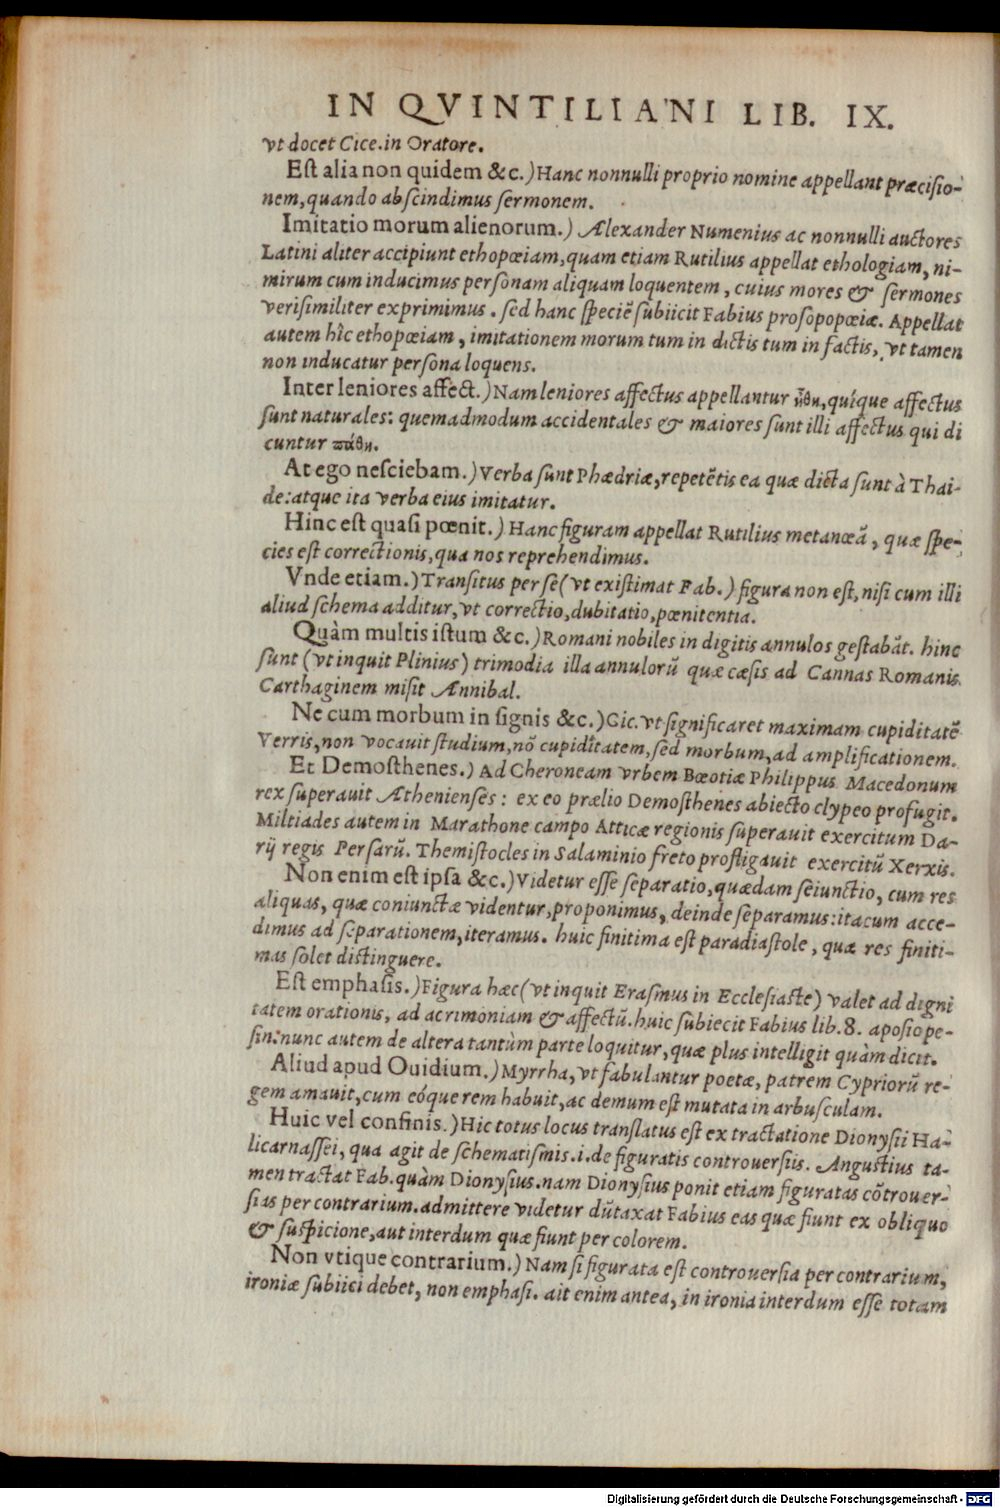 IN QVINTILIANI LIB. IX.
vt docet Cice. in Oratore.
Est alia non quidem &c.) Hanc nonnulli proprio nomine appellant præcisio-
nem, quando abscindimus sermonem.
Imitatio morum alienorum.) Alexander Numenius ac nonnulli auctores
Latini aliter accipiunt ethopœiam, quam etiam Rutilius appellat ethologiam, ni-
mirum cum inducimus personam aliquam loquentem, cuius mores & sermones
verisimiliter exprimimus. sed hanc speciē subiicit Fabius prosopopœiæ. Appellat
autem hîc ethopœiam, imitationem morum tum in dictis tum in factis, vt tamen
non inducatur persona loquens.
Inter leniores affect.) Nam leniores affectus appellantur ἤθη, quíque affectus
sunt naturales: quemadmodum accidentales & maiores sunt illi affectus qui di
cuntur πάθη.
At ego nesciebam.) Verba sunt Phædriæ, repetētis ea quæ dicta sunt à Thai-
de: atque ita verba eius imitatur.
Hinc est quasi pœnit.) Hanc figuram appellat Rutilius metanœā, quæ spe-
cies est correctionis, qua nos reprehendimus.
Vnde etiam.) Transitus per se (vt existimat Fab.) figura non est, nisi cum illi
aliud schema additur, vt correctio, dubitatio, pœnitentia.
Quàm multis istum &c.) Romani nobiles in digitis annulos gestabāt. hinc
sunt (vt inquit Plinius) trimodia illa annulorū quæ cæsis ad Cannas Romanis
Carthaginem misit Annibal.
Ne cum morbum in signis &c.) Cic. vt significaret maximam cupiditatē
Verris, non vocauit studium, nō cupiditatem, sed morbum, ad amplificationem.
Et Demosthenes.) Ad Cheroneam vrbem Bœotiæ Philippus Macedonum
rex superauit Athenienses: ex eo prælio Demosthenes abiecto clypeo profugit.
Miltiades autem in Marathone campo Atticæ regionis superauit exercitum Da-
rij regis Persarū. Themistocles in Salaminio freto profligauit exercitū Xerxis.
Non enim est ipsa &c.) Videtur esse separatio, quædam seiunctio, cum res
aliquas, quæ coniunctæ videntur, proponimus, deinde separamus: ita cum acce-
dimus ad separationem, iteramus. huic finitima est paradiastole, quæ res finiti-
mas solet distinguere.
Est emphasis.) Figura hæc (vt inquit Erasmus in Ecclesiaste) valet ad digni
tatem orationis, ad acrimoniam & affectū. huic subiecit Fabius lib. 8. aposiope-
sin: nunc autem de altera tantùm parte loquitur, quæ plus intelligit quàm dicit.
Aliud apud Ouidium.) Myrrha, vt fabulantur poetæ, patrem Cypriorū re-
gem amauit, cum eóque rem habuit, ac demum est mutata in arbusculam.
Huic vel confinis.) Hic totus locus translatus est ex tractatione Dionysii Ha-
licarnassei, qua agit de schematismis. i. de figuratis controuersiis. Angustius ta-
men tractat Fab. quàm Dionysius. nam Dionysius ponit etiam figuratas cōtrouer-
sias per contrarium. admittere videtur dūtaxat Fabius eas quæ fiunt ex obliquo
& suspicione, aut interdum quæ fiunt per colorem.
Non vtique contrarium.) Nam si figurata est controuersia per contrarium,
ironiæ subiici debet, non emphasi. ait enim antea, in ironia interdum esse totam
Digitalisierung gefördert durch die Deutsche Forschungsgemeinschaft - DFG